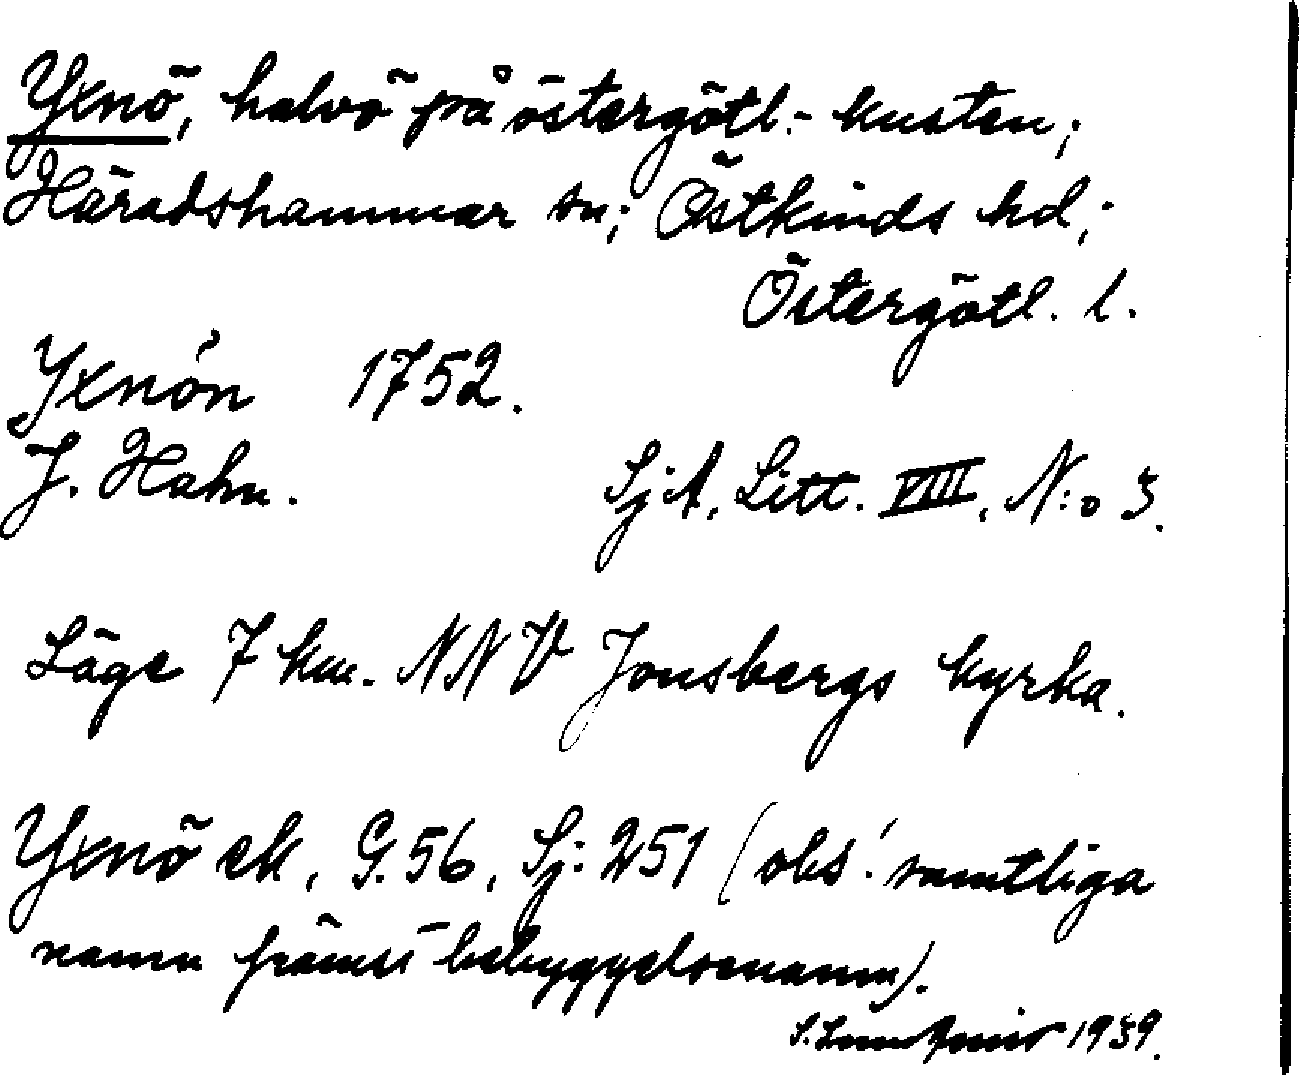 Yxnö, halvö på östergötl.-kusten;
Häradshammar sn; Östkinds hd;
Östergötl. l.
Yxnön 1752.
J. Hahn. SjA, Litt. VIII, N:o 3.
Läge 7 km. NNV Jonsbergs kyrka.
Yxnö ek, G. 56, Sj: 251 (obs! samtliga
namn främst bebyggelsenamn).
S. 1939.